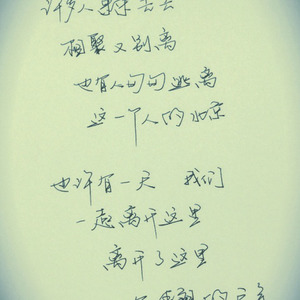 许多人来来去去
相聚又别离
也有人匆匆逃离
这一个人的北京
也许有一天 我们
一起离开这里
离开了这里